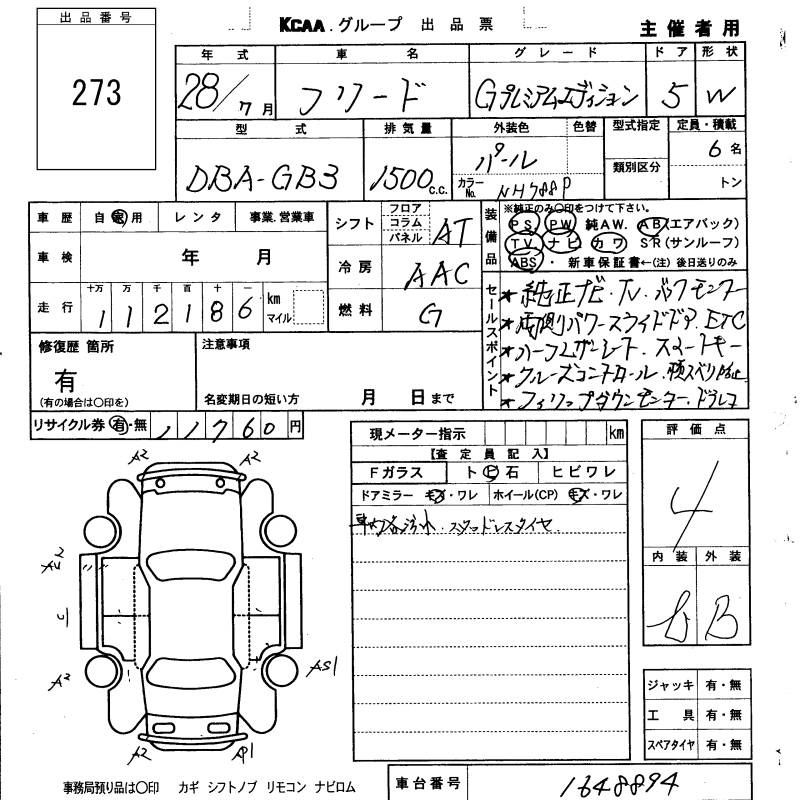 出品番号
273
KCAA.グループ 出品票
主催者用
年式 車名 グレード ドア 形状
28/7月 フリード Gプレミアムエディション 5 W
型式 排気量 外装色 色替 型式指定 定員・積載
DBA-GB3 1500c.c. パール 6名
カラーNo. NH788P 類別区分 トン
車歴 自家用 レンタ 事業.営業車
シフト フロア コラム パネル AT
車検 年 月
冷房 AAC
走行 十万 万 千 百 十 一
112186 km マイル
燃料 G
装備品
※純正のみ○印をつけて下さい。
PS PW 純AW. AB(エアバック)
TV ナビ カワ SR(サンルーフ)
ABS・ 新車保証書←(注) 後日送りのみ
セールスポイント
★純正ナビ・TV.バックモニター
★両側パワースライドドア.ETC
★ハーフレザーシート.スマートキー
★クルーズコントロール.横スベリ防止
★フィリップダウンモニター.ドラレコ
修復歴 箇所
有
(有の場合は○印を)
注意事項
名変期日の短い方 月 日まで
リサイクル券 有・無 11760円
現メーター指示 km
【査定員記入】
Fガラス ト ビ 石 ヒビワレ
ドアミラー キズ・ワレ ホイール(CP) キズ・ワレ
車内各汚れ.スタッドレスタイヤ
評価点
4
内装 外装
B
A2 A2
C
A2 AS1
A2
ジャッキ 有・無
工具 有・無
スペアタイヤ 有・無
事務局預り品は○印 カギ シフトノブ リモコン ナビロム
車台番号 1648894